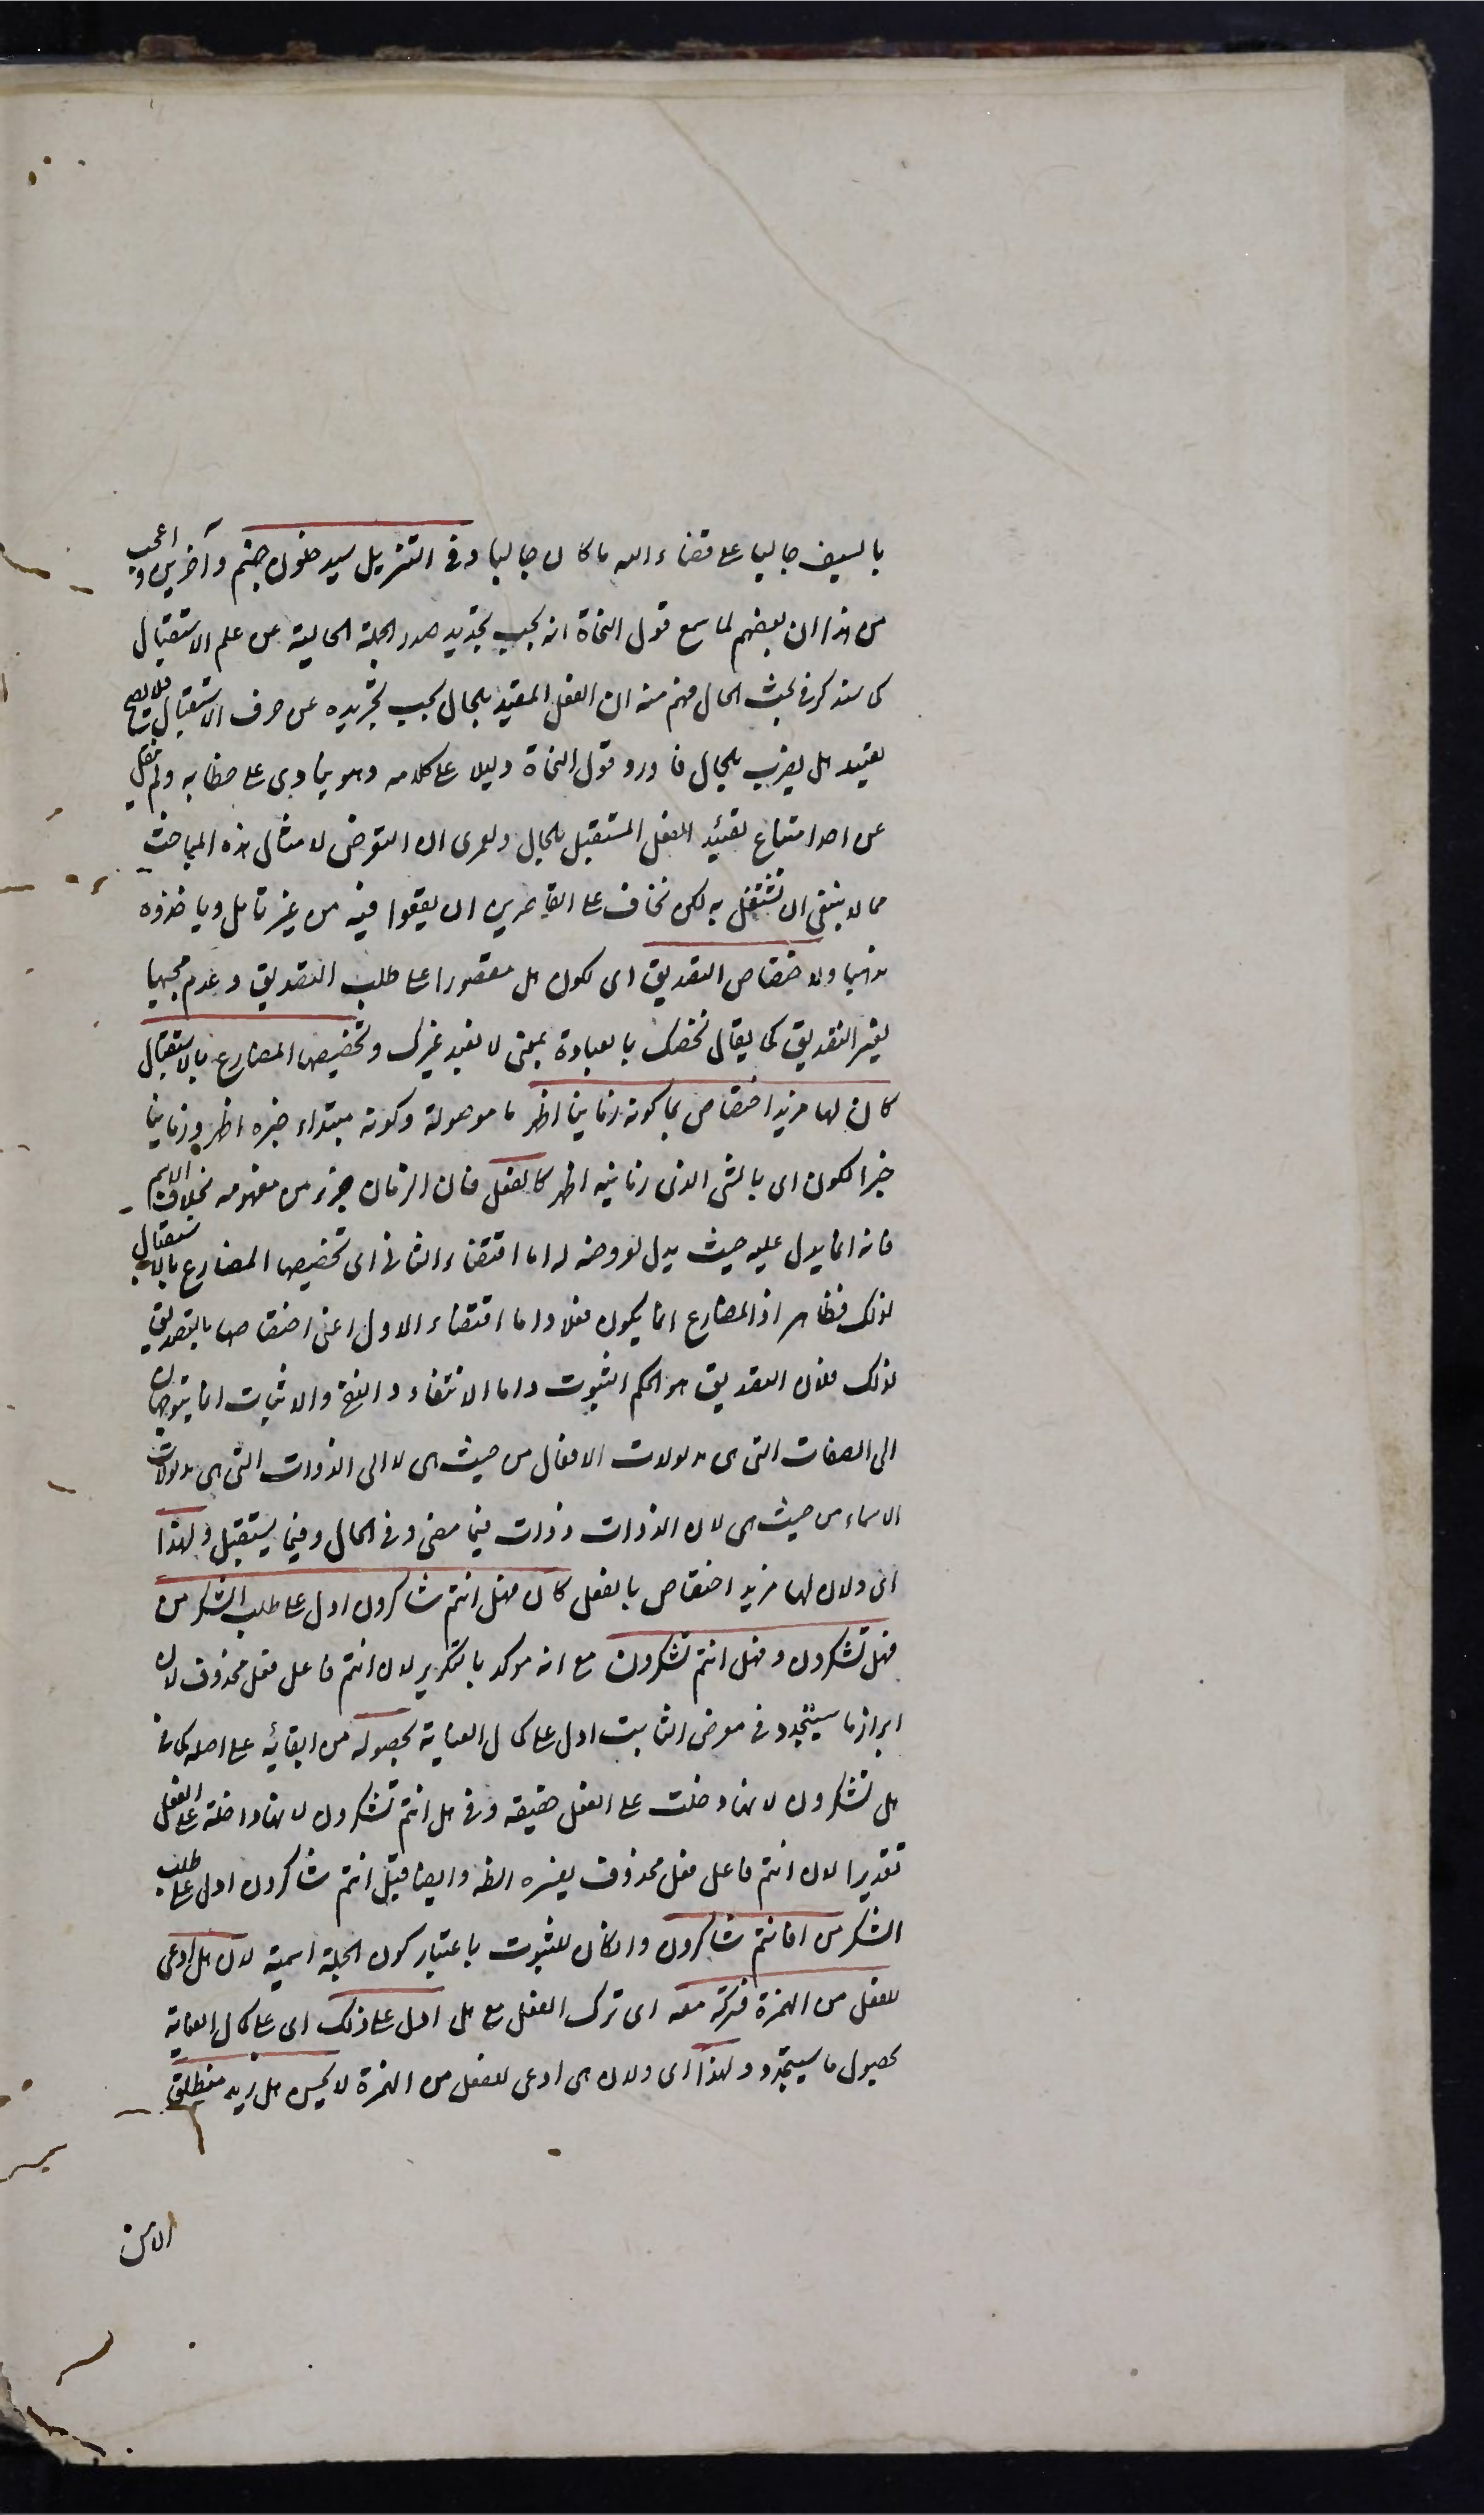 بالسيف جالبا على قضاء الله ما كان جالبا وفى التنزيل سيدخلون جهنم داخرين واعجب
من هذا ان بعضهم لما سمع قول النحاة انه يجب تجديد صدر الجملة الحالية عن علم الاستقبال
كما سنذكر فى بحث الحال فهم منه ان الفعل المقيد بالحال يجب تجريده عن حرف الاستقبال فلا يصح
تقييد هل يضرب بالحال فاورد قول النحاة دليلا على كلامه وهو ينادى على خطابه ولم ينقل
عن احد امتناع تقييد الفعل المستقبل بالحال ولعمرى ان التعرض لامثال هذه المباحث
مما لا ينبغى ان نشتغل به لكن نخاف على القاصرين ان يقعوا فيه من غير تامل وياخذوه
مذهبا ولاختصاص التصديق اى لكون هل مقصورا على طلب التصديق وعدم مجيها
لغير التصديق كما يقال نخصك بالعبادة بمعنى لا نعبد غيرك وتخصيص المضارع بالاستقبال
كان لها مزيد اختصاص بما كونه زمانيا اظهر ما موصولة وكونه مبتداء خبره اظهر وزمانيا
خبر الكون اى بالشى الذى زمانيته اظهر كالفعل فان الزمان جزء من مفهومه بخلاف الاسم
فانه انما يدل عليه حيث يدل بعروضه له اما اقتضاء الثانى اى تخصيص المضارع بالاستقبال
لذلك فظاهر اذ المضارع انما يكون فعلا واما اقتضاء الاول اعنى اختصاصها بالتصديق
لذلك فلان التصديق هو الحكم الثبوت واما الانتفاء والنفى والاثبات انما يتوجهان
الى الصفات التى هى مدلولات الافعال من حيث هى لا الى الذوات التى هى مدلولات
الاسماء من حيث هى لان الذوات ذوات فيما مضى وفى الحال وفيما يستقبل ولهذا
اى ولان لها مزيد اختصاص بالفعل كان فهل انتم شاكرون ادل على طلب الشكر من
فهل تشكرون وفهل انتم تشكرون مع انه موكد بالتكرير لان انتم فاعل فعل محذوف لان
ابراز ما سيتجدد فى معرض الثابت ادل على كمال العناية بحصوله من ابقائه على اصله كما فى
هل تشكرون لانها دخلت على الفعل حقيقة وفى هل انتم تشكرون لانها داخلة على الفعل
تقديرا لان انتم فاعل فعل محذوف يفسره الظ وايضا فهل انتم شاكرون ادل على طلب
الشكر من افانتم شاكرون وان كان للثبوت باعتبار كون الجملة اسمية لان هل ادعى
للفعل من الهمزة فتركه معه اى ترك الفعل مع هل ادل على ذلك اى على كمال العناية
بحصول ما سيتجدد ولهذا اى ولان هى ادعى للفعل من الهمزة لا يحسن هل زيد منطلق
الامن